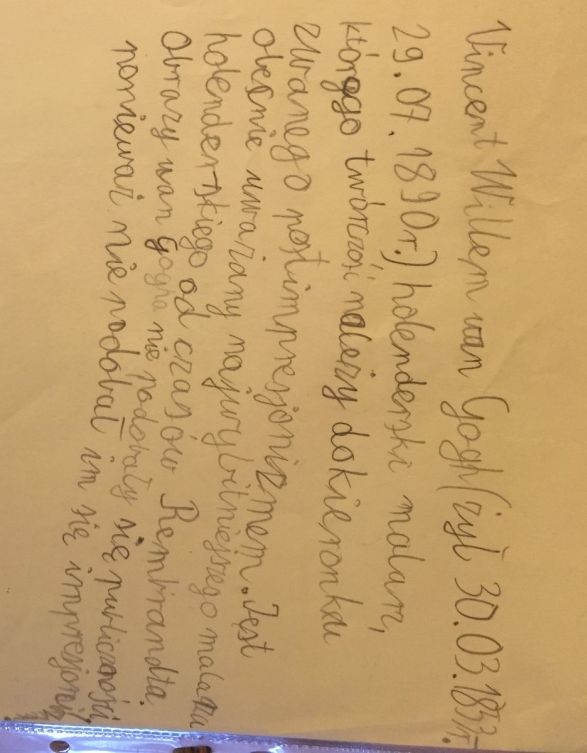 Vincent Willem wan Gogh (żył 30.03.1853r.
29.07.1890r.) holenderski malarz,
którego twórczość należy do kieronku
zwanego postimpresjonizmem. Jest
obecnie uważany najwybitniejszego malarza
holenderskiego od czasów Rembrandta.
Obrazy wan Gogha nie podobały się publiczności
ponieważ nie podobał im się impresjoni